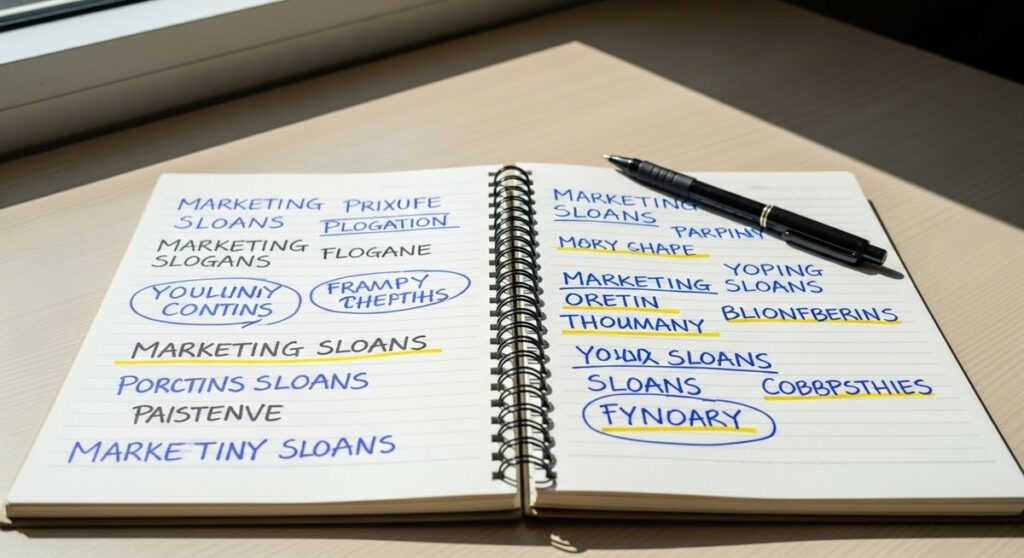 MARKETING
SLOANS
PRIXUFE
PLOGATION
MARKETING
SLOGANS
FLOGANE
YOULUNIY
CONTINS
FRAMPY
CHEPTIHS
MARKETING SLOANS
PORCTINS SLOANS
PAISTENVE
MARKETINY SLOANS
MARKETING
SLOANS
PARPINY
MORY CHAPE
MARKETING
ORETIN
THOUMANY
YOPING
SLOANS
BLIONFBERINS
SLOANS
SLOANS
COBBPSTHIES
FYNOARY